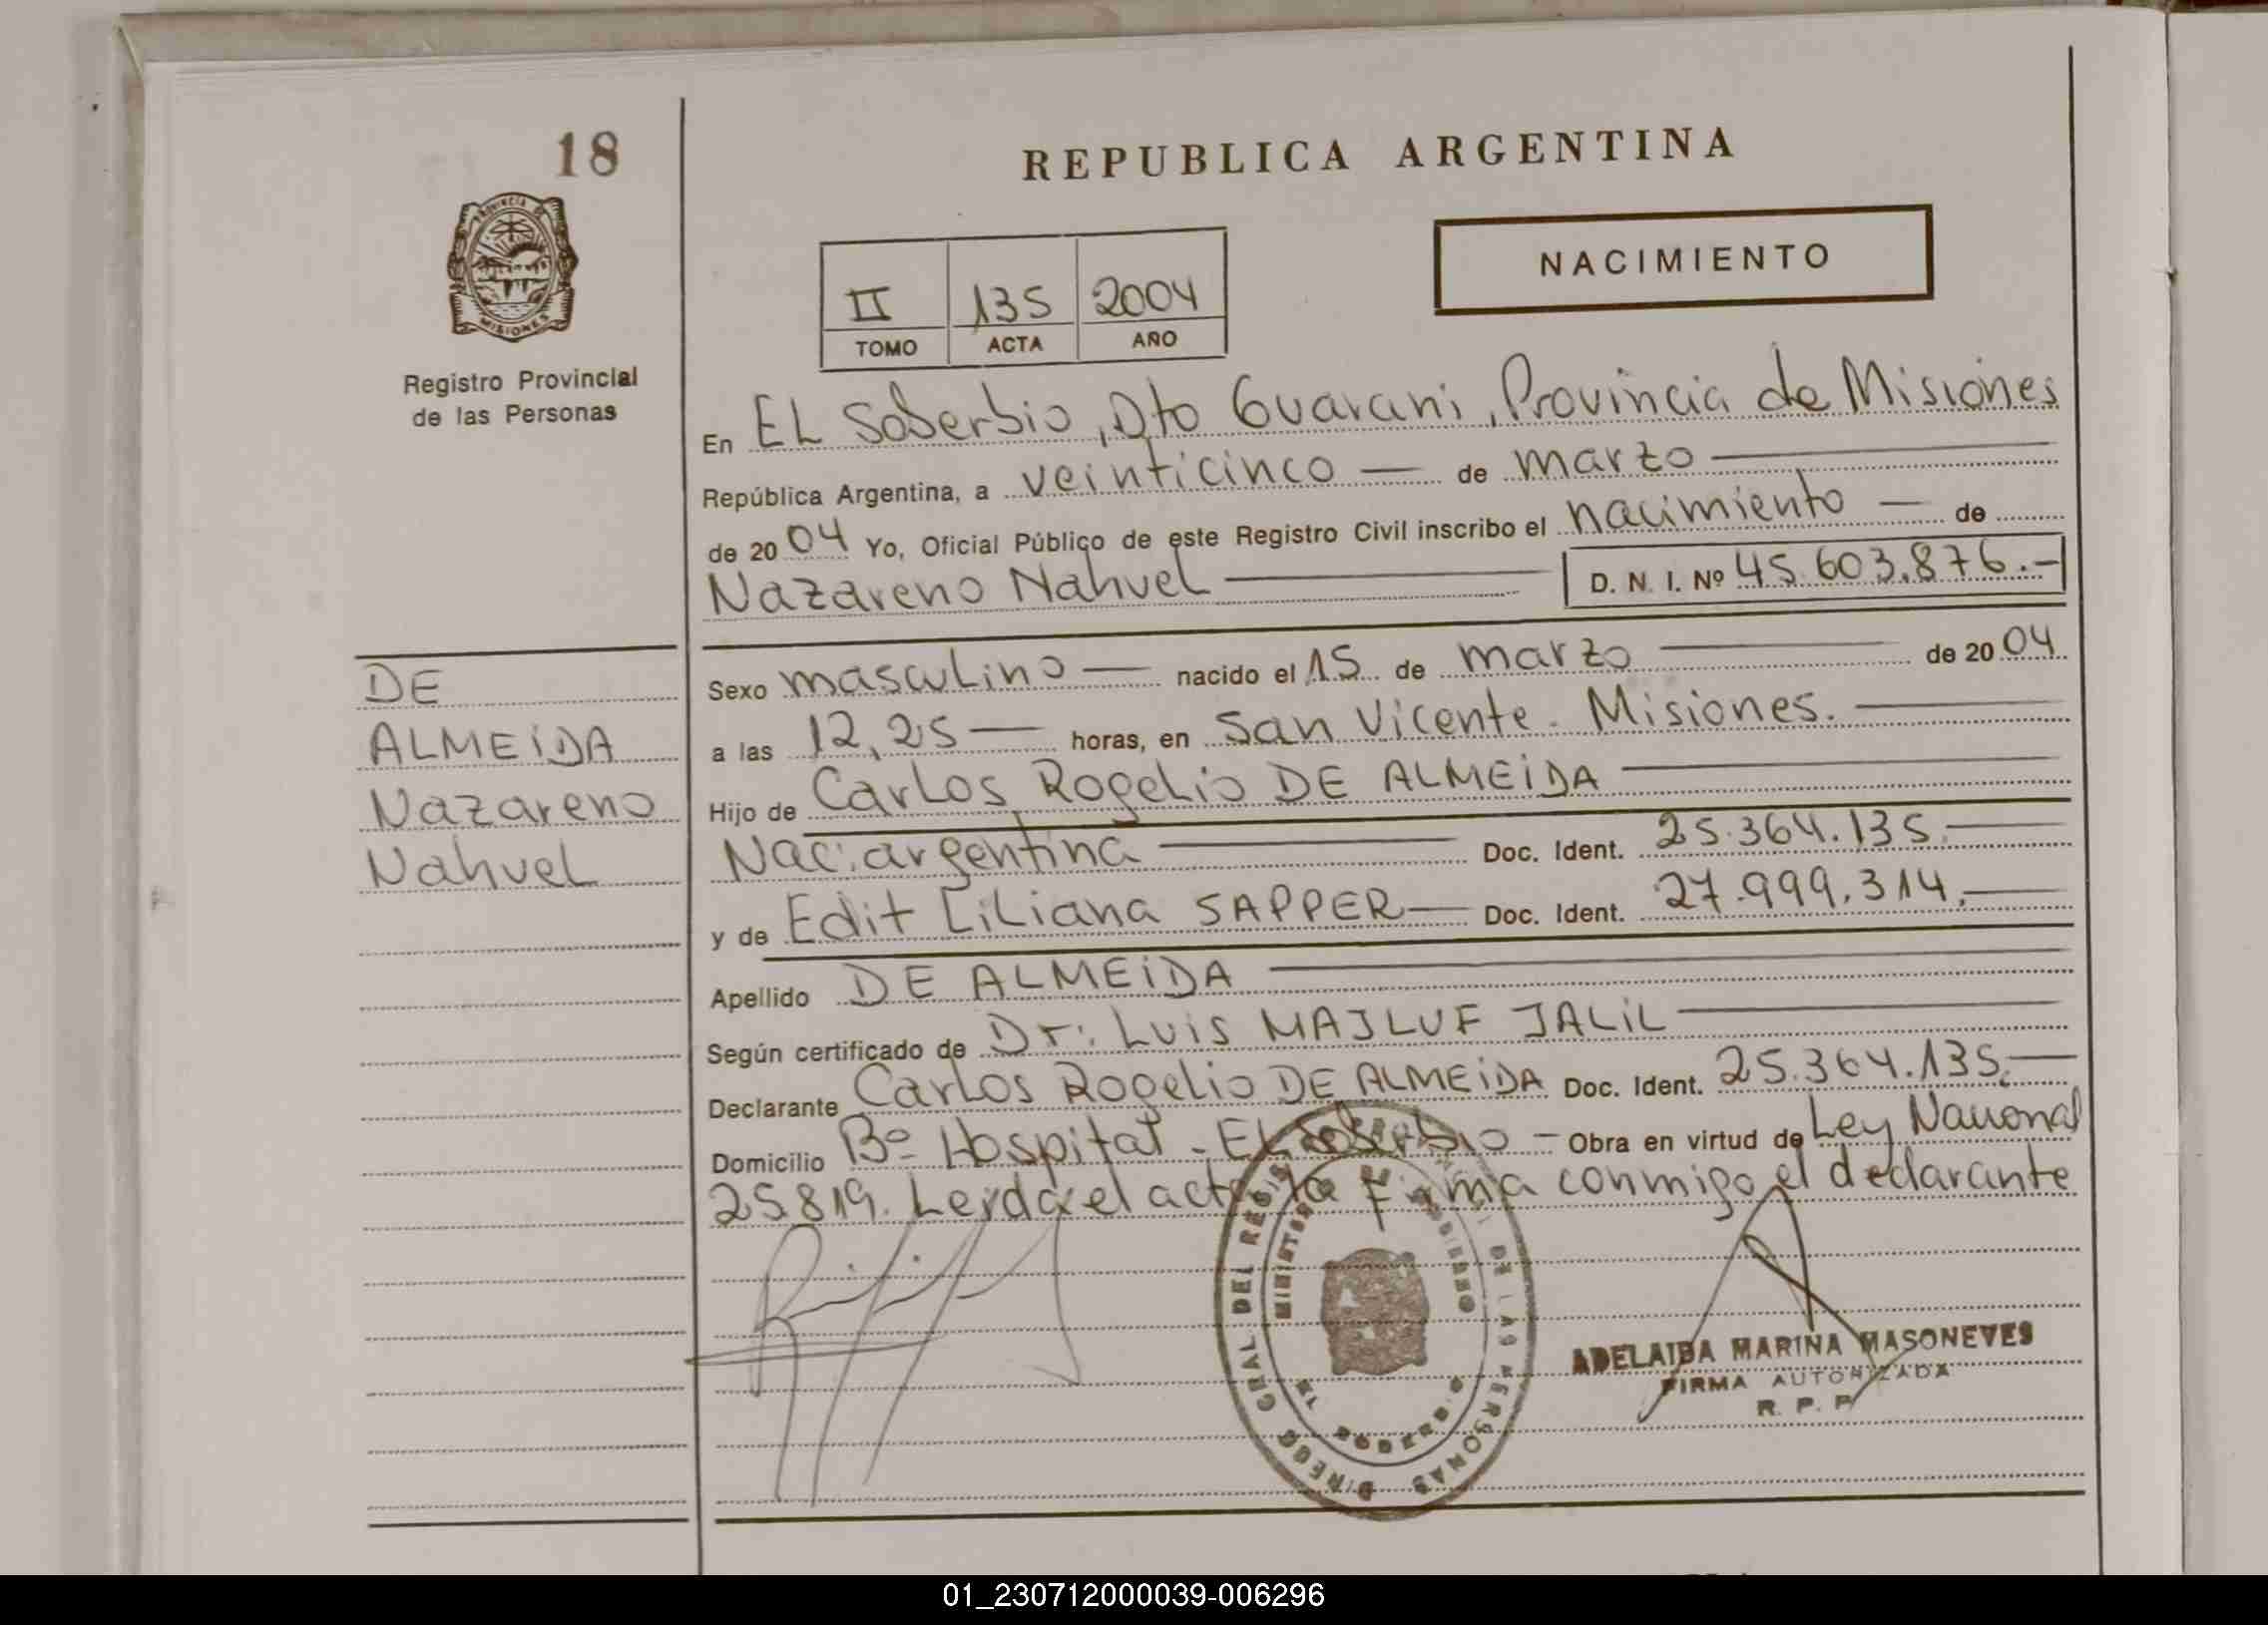 18
REPUBLICA ARGENTINA
PROVINCIA DE
MISIONES
NACIMIENTO
II 135 2004
TOMO ACTA AÑO
Registro Provincial
de las Personas
En EL Soberbio, Dto Guarani, Provincia de Misiones
República Argentina, a veinticinco — de marzo —
de 2004 Yo, Oficial Público de este Registro Civil inscribo el nacimiento — de
Nazareno Nahuel — D. N. I. Nº 45.603.876.-
DE
ALMEIDA
Nazareno
Nahuel
Sexo masculino — nacido el 15 de marzo — de 2004
a las 12,25 — horas, en San Vicente - Misiones. —
Hijo de Carlos Rogelio DE ALMEIDA —
Nac: argentina — Doc. Ident. 25.364.135. —
y de Edit Liliana SAPPER — Doc. Ident. 27.999.314. —
Apellido DE ALMEIDA —
Según certificado de Dr: Luis MAJLUF JALIL —
Declarante Carlos Rogelio DE ALMEIDA Doc. Ident. 25.364.135. —
Domicilio Bº Hospital - El Soberbio — Obra en virtud de Ley Nacional
25.819. Leida el acta la firma conmigo el declarante
DIRECC GRAL DEL REGIS DE LAS PERSONAS
MINISTER GOBIERNO
ADELAIDA MARINA MASONEVES
FIRMA AUTORIZADA
R. P. P.
01_230712000039-006296